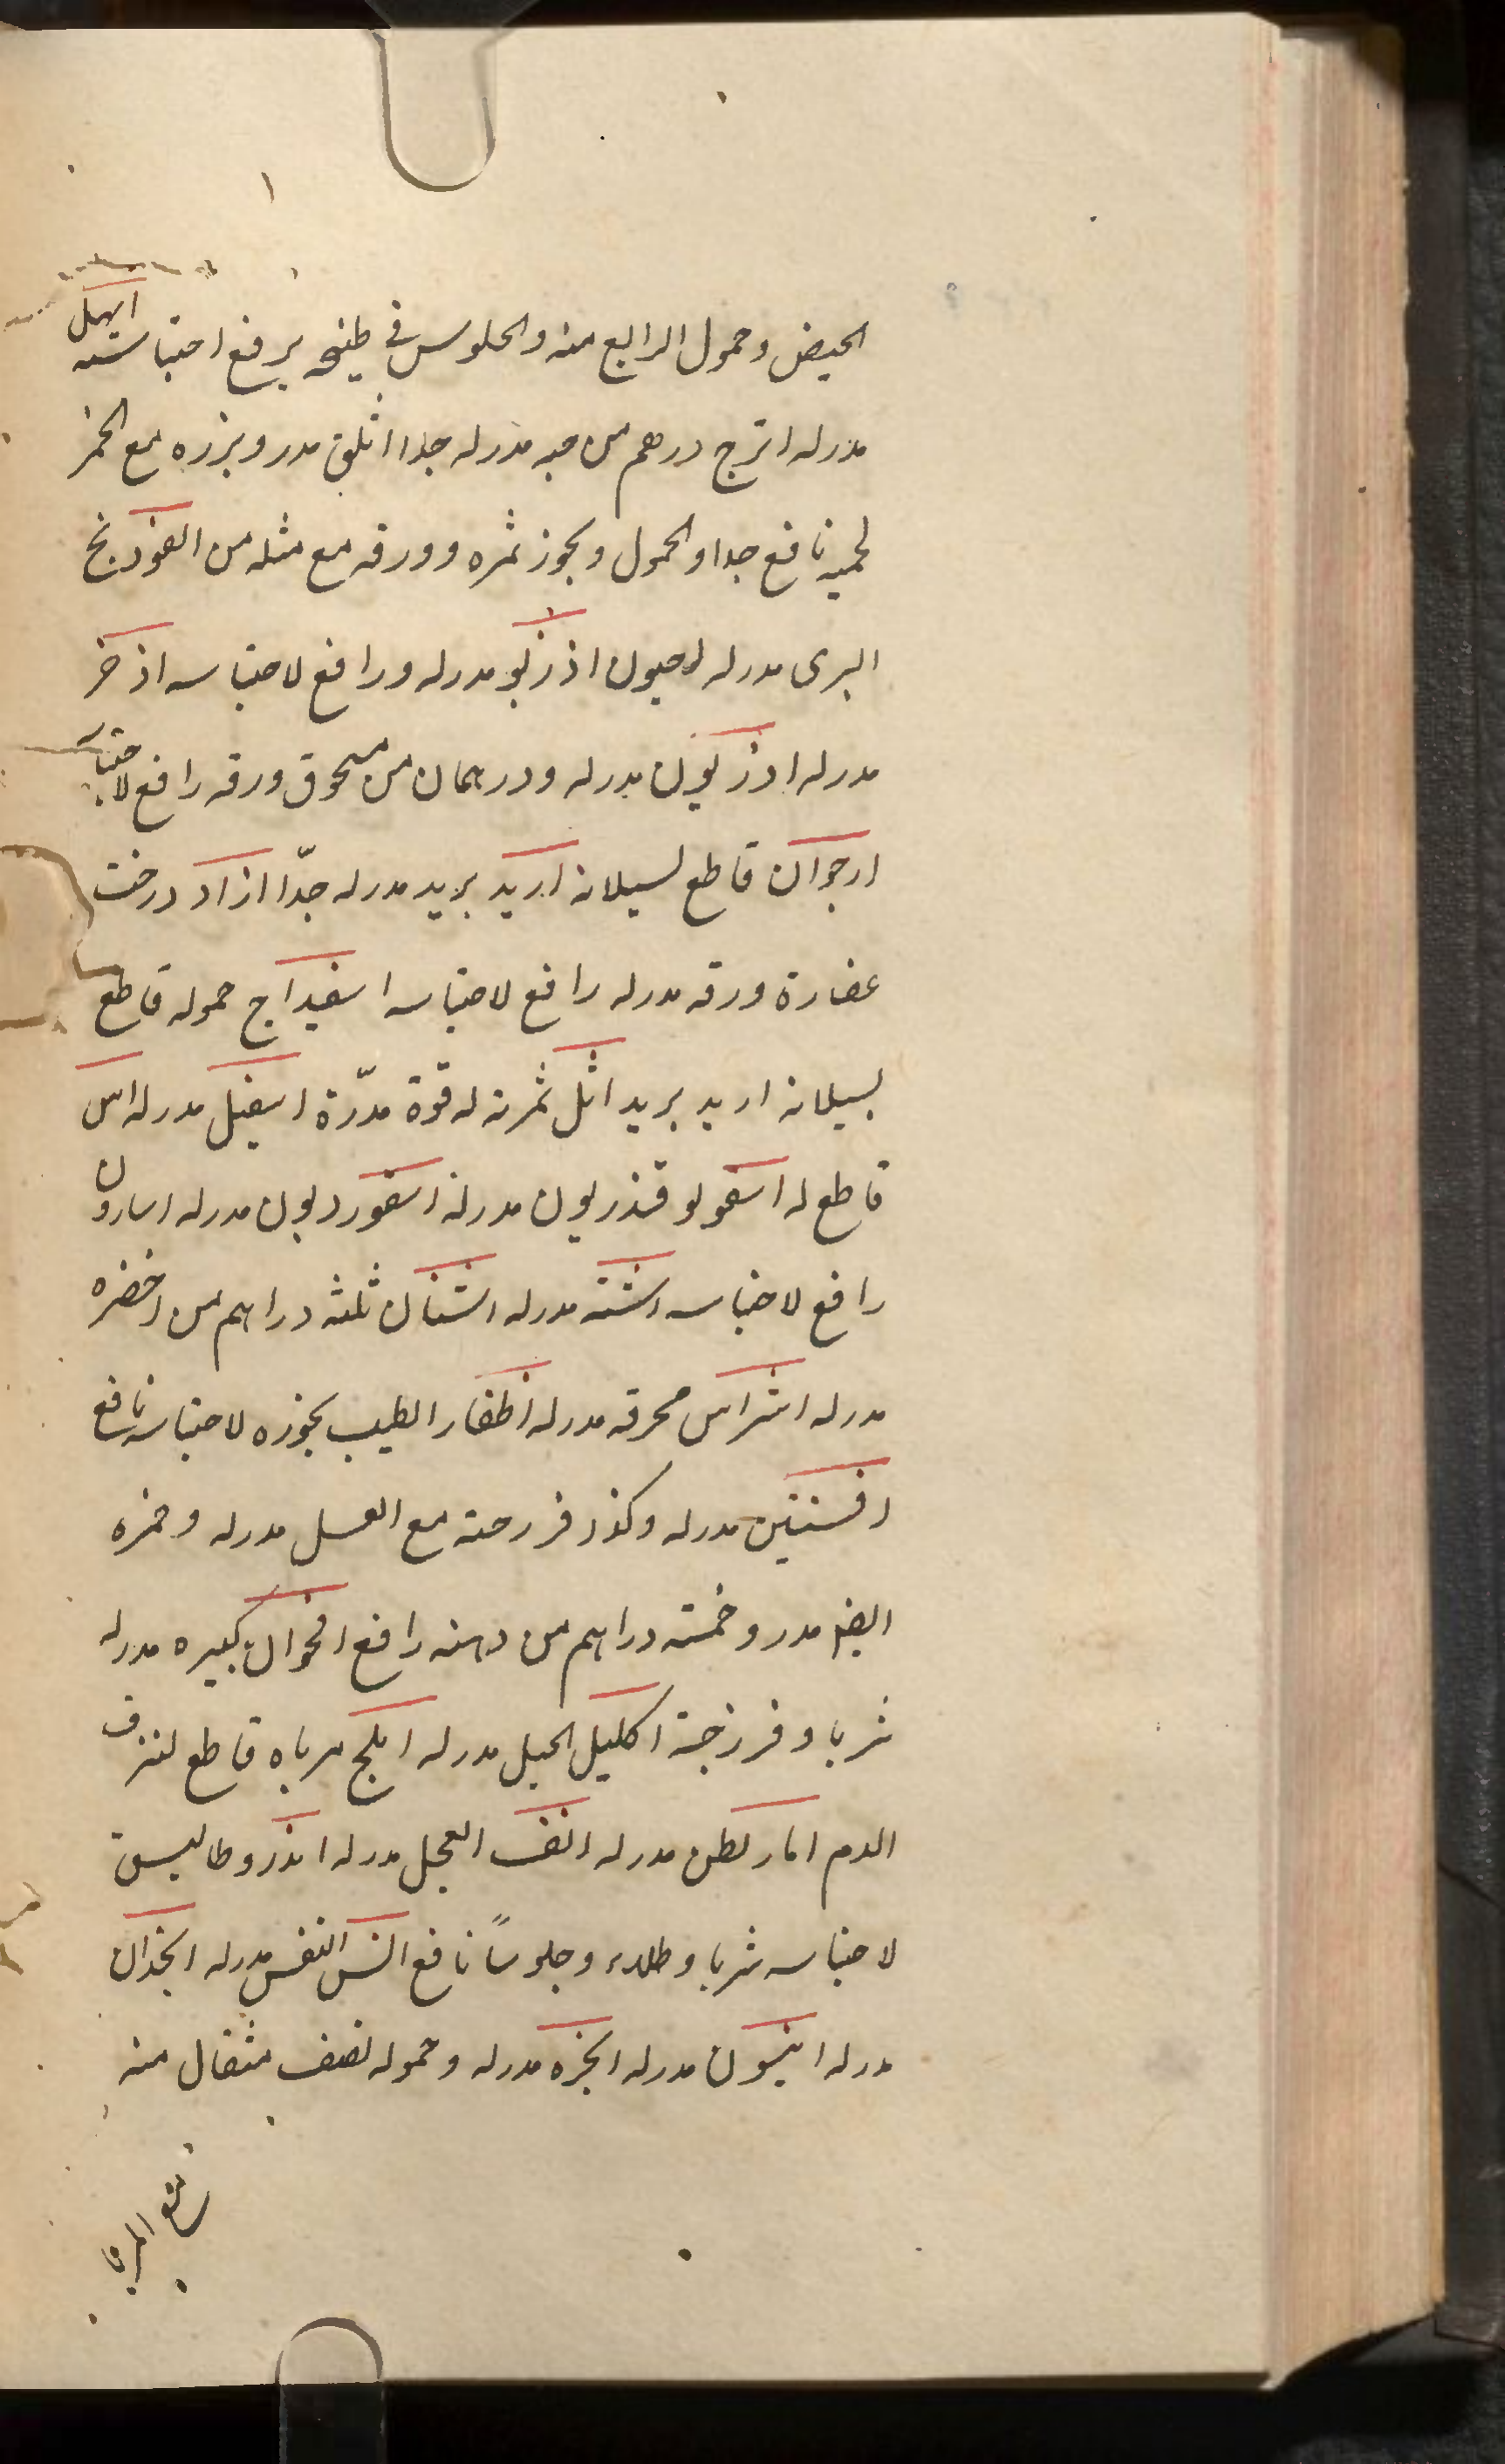 الحیض وحمول الرابع منه والجلوس فی طبیخه یرفع احتباسه ابهل
مدر له اترج درهم من حبه مدر له جدا اثلق مدر وبزره مع الخمر
نافع جدا والحمول وبخور ثمره وورقه مع مثله من الفوذنج
البری مدر له اذریو مدر له ورافع لاحتباسه اذخر
مدر له اذریون مدر له ودرهمان من مسحوق ورقه رافع لاحتباسه
ارجوان قاطع لسیلانه اربد برید مدر له جدّا ازاد درخت
عصارة ورقه مدر له رافع لاحتباسه اسفیداج حموله قاطع
لسیلانه اربد برید اثل ثمرته له قوة مدرّة اسقیل مدر له اس
قاطع له اسقولوقندریون مدر له اسقوردیون مدر له اسارون
رافع لاحتباسه اشنه مدر له اشنان ثلثه دراهم من اخضره
مدر له اشراس محرقه مدر له اظفار الطیب بخوره لاحتباسه نافع
افسنتین مدر له وکذا فرزجته مع العسل مدر له وخمره
ایضا مدر وخمسه دراهم من دهنه رافع اقحوان کبیره مدر له
شربا وفرزجة اکلیل الجبل مدر له املج مرباه قاطع لنزف
الدم امار یطن مدر له انف العجل مدر له اندروطالیس
لاحتباسه شربا وطلاء وجلوسًا نافع انس النفس مدر له انجذان
مدر له انیسون مدر له انجره مدر له وحموله نصف مثقال منه